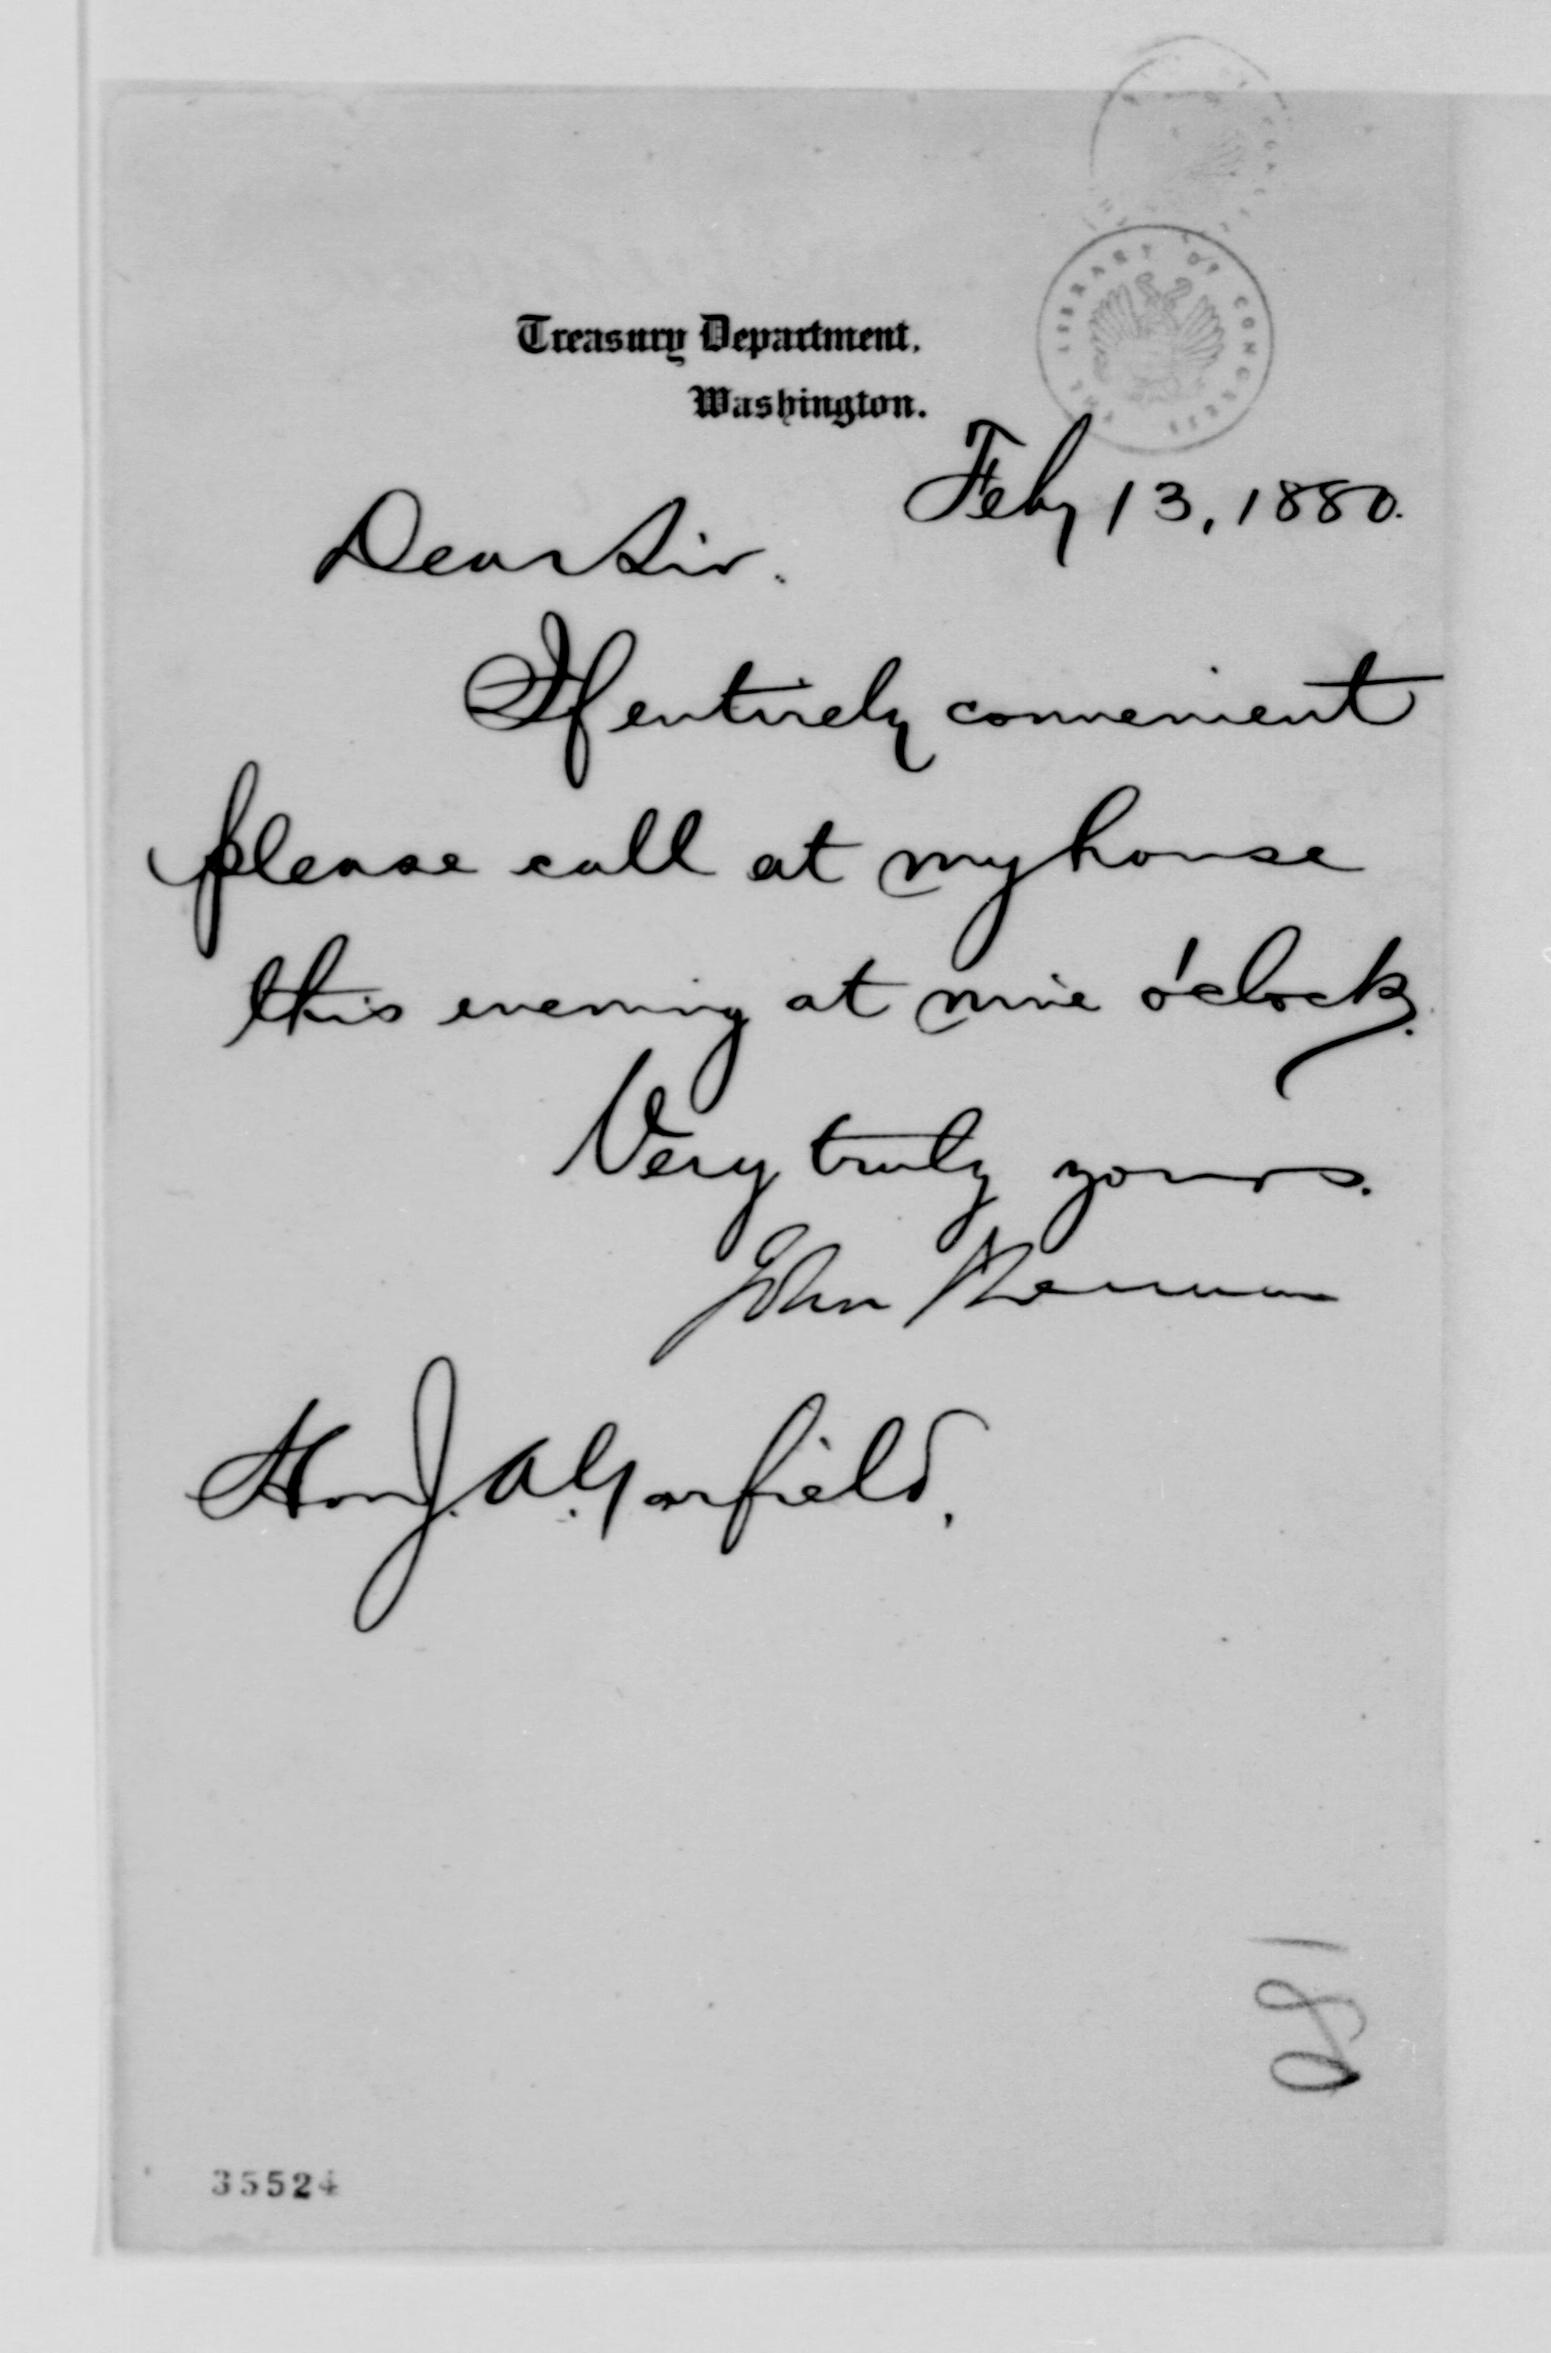 THE LIBRARY OF CONGRESS
Treasury Department,
Washington.
Feby 13, 1880.
Dear Sir.
If entirely convenient
please call at my house
this evening at nine o'clock.
Very truly yours.
John Sherman
Hon J. A. Garfield.
180
35524